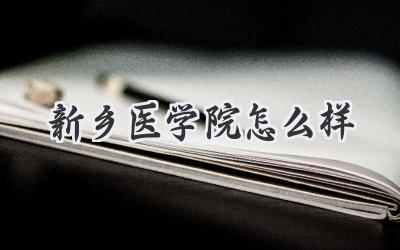 新乡医学院怎么样